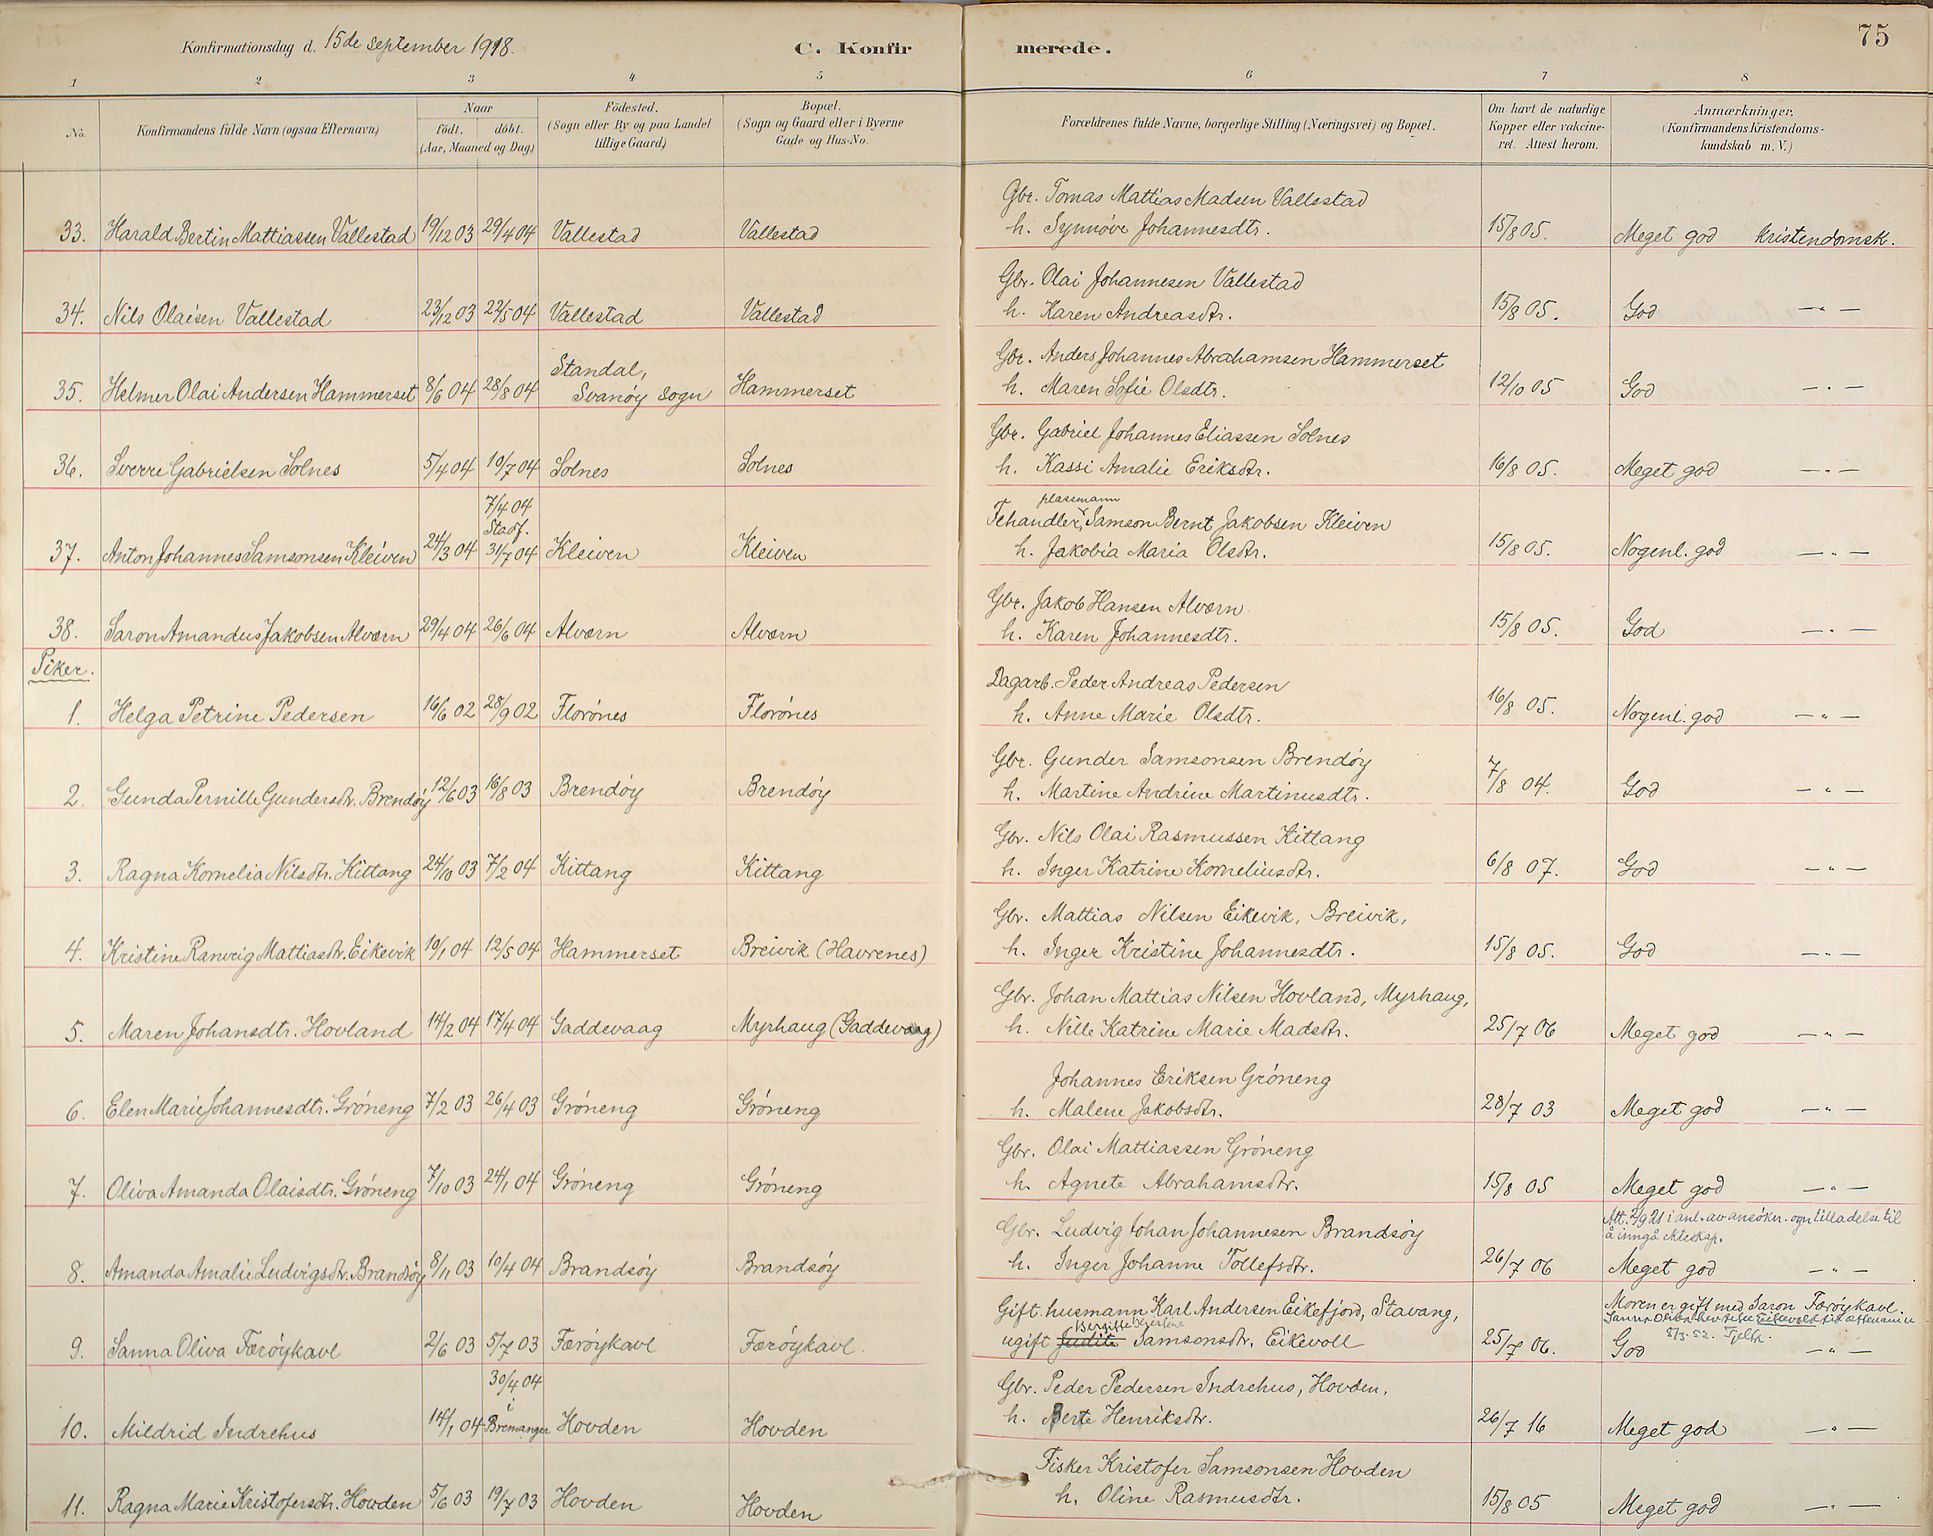 Konfirmationsdag d. 15de september 1918. C. Konfirmerede. 75
1 2 3 4 5 6 7 8
No. Konfirmandens fulde Navn (ogsaa Efternavn) Naar födt. döbt. (Aar, Maaned og Dag) Födested. (Sogn eller By og paa Landet tillige Gaard) Bopæl. (Sogn og Gaard eller i Byerne Gade og Hus-No. Forældrenes fulde Navne, borgerlige Stilling (Næringsvei) og Bopæl. Om havt de naturlige Kopper eller vakcineret. Attest herom. Anmærkninger. (Konfirmandens Kristendomskundskab m. V.)
Gbr. Tomas Mattias Madsen Vallestad
33. Harald Bertin Mattiassen Vallestad 19/12 03 29/4 04 Vallestad Vallestad h. Synnöve Johannesdtr. 15/8 05. Meget god kristendomsk.
Gbr. Olai Johannesen Vallestad
34. Nils Olaisen Vallestad 23/12 03 22/5 04 Vallestad Vallestad h. Karen Andreasdtr. 15/8 05. God —„—
Standal, Gbr. Anders Johannes Abrahamsen Hammerset
35. Helmer Olai Andersen Hammerset 8/6 04 28/8 04 Svanöy sogn Hammerset h. Maren Sofie Olsdtr. 12/10 05 God —„—
Gbr. Gabriel Johannes Eliassen Solnes
36. Sverre Gabrielsen Solnes 5/4 04 10/7 04 Solnes Solnes h. Kassi Amalie Eriksdtr. 16/8 05. Meget god —„—
7/4 04 plassmann
Stadf. Fehandler, Samson Bernt Jakobsen Kleiven
37. Anton Johannes Samsonsen Kleiven 24/3 04 31/7 04 Kleiven Kleiven h. Jakobia Maria Olsdtr. 15/8 05. Nogenl. god —„—
Gbr. Jakob Hansen Alværn
38. Saron Amandus Jakobsen Alværn 29/4 04 26/6 04 Alværn Alværn h. Karen Johannesdtr. 15/8 05. God —„—
Piker.
Dagarb. Peder Andreas Pedersen
1. Helga Petrine Pedersen 16/6 02 28/9 02 Florönes Florönes h. Anne Marie Olsdtr. 16/8 05. Nogenl. god —„—
Gbr. Gunder Samsonsen Brendöy
2. Gunda Pernille Gundersdtr. Brendöy 12/6 03 16/8 03 Brendöy Brendöy h. Martine Andrine Martinusdtr. 7/8 04. God —„—
Gbr. Nils Olai Rasmussen Kittang
3. Ragna Kornelia Nilsdtr. Kittang 24/10 03 7/2 04 Kittang Kittang h. Inger Katrine Korneliusdtr. 6/8 07. God —„—
Gbr. Mattias Nilsen Eikevik, Breivik,
4. Kristine Ranveig Mattiasdtr. Eikevik 10/1 04 12/5 04 Hammerset Breivik (Havrenes) h. Inger Kristine Johannesdtr. 15/8 05. God —„—
Gbr. Johan Mattias Nilsen Hovland, Myrhaug,
5. Maren Johansdtr. Hovland 14/2 04 17/4 04 Gaddevaag Myrhaug (Gaddevaag) h. Nille Katrine Marie Madsdtr. 25/7 06 Meget god —„—
Johannes Eriksen Gröneng
6. Elen Marie Johannesdtr. Gröneng 7/2 03 26/4 03 Gröneng Gröneng h. Malene Jakobsdtr. 28/7 03 Meget god —„—
Gbr. Olai Mattiassen Gröneng
7. Oliva Amanda Olaisdtr. Gröneng 7/10 03 24/1 04 Gröneng Gröneng h. Agnete Abrahamsdtr. 15/8 05 Meget god —„—
Gbr. Ludvig Johan Johannesen Brandsöy Att. 2/9 21 i anl. av ansökn. ogn tilladelse til å inngå ekteskap.
8. Amanda Amalie Ludvigsdtr. Brandsöy 8/11 03 10/4 04 Brandsöy Brandsöy h. Inger Johanne Tollefsdtr. 26/7 06 Meget god —„—
Gift husmann Karl Andersen Eikefjord, Stavang, Moren er gift med Saron Færöykavl.
Bergitte
9. Sanna Oliva Færöykavl 2/6 03 5/7 03 Færöykavl Færöykavl. ugift Judite Samsonsdtr. Eikevoll 25/7 06. God —„—
30/4 04 Gbr. Peder Pedersen Indrehus, Hovden,
10. Mildrid Indrehus 14/1 04 i Bremanger Hovden Hovden h. Berte Henriksdtr. 26/7 16 Meget god —„—
Fisker Kristofer Samsonsen Hovden
11. Ragna Marie Kristofersdtr. Hovden 5/6 03 19/7 03 Hovden Hovden h. Oline Rasmusdtr. 15/8 05 Meget god —„—